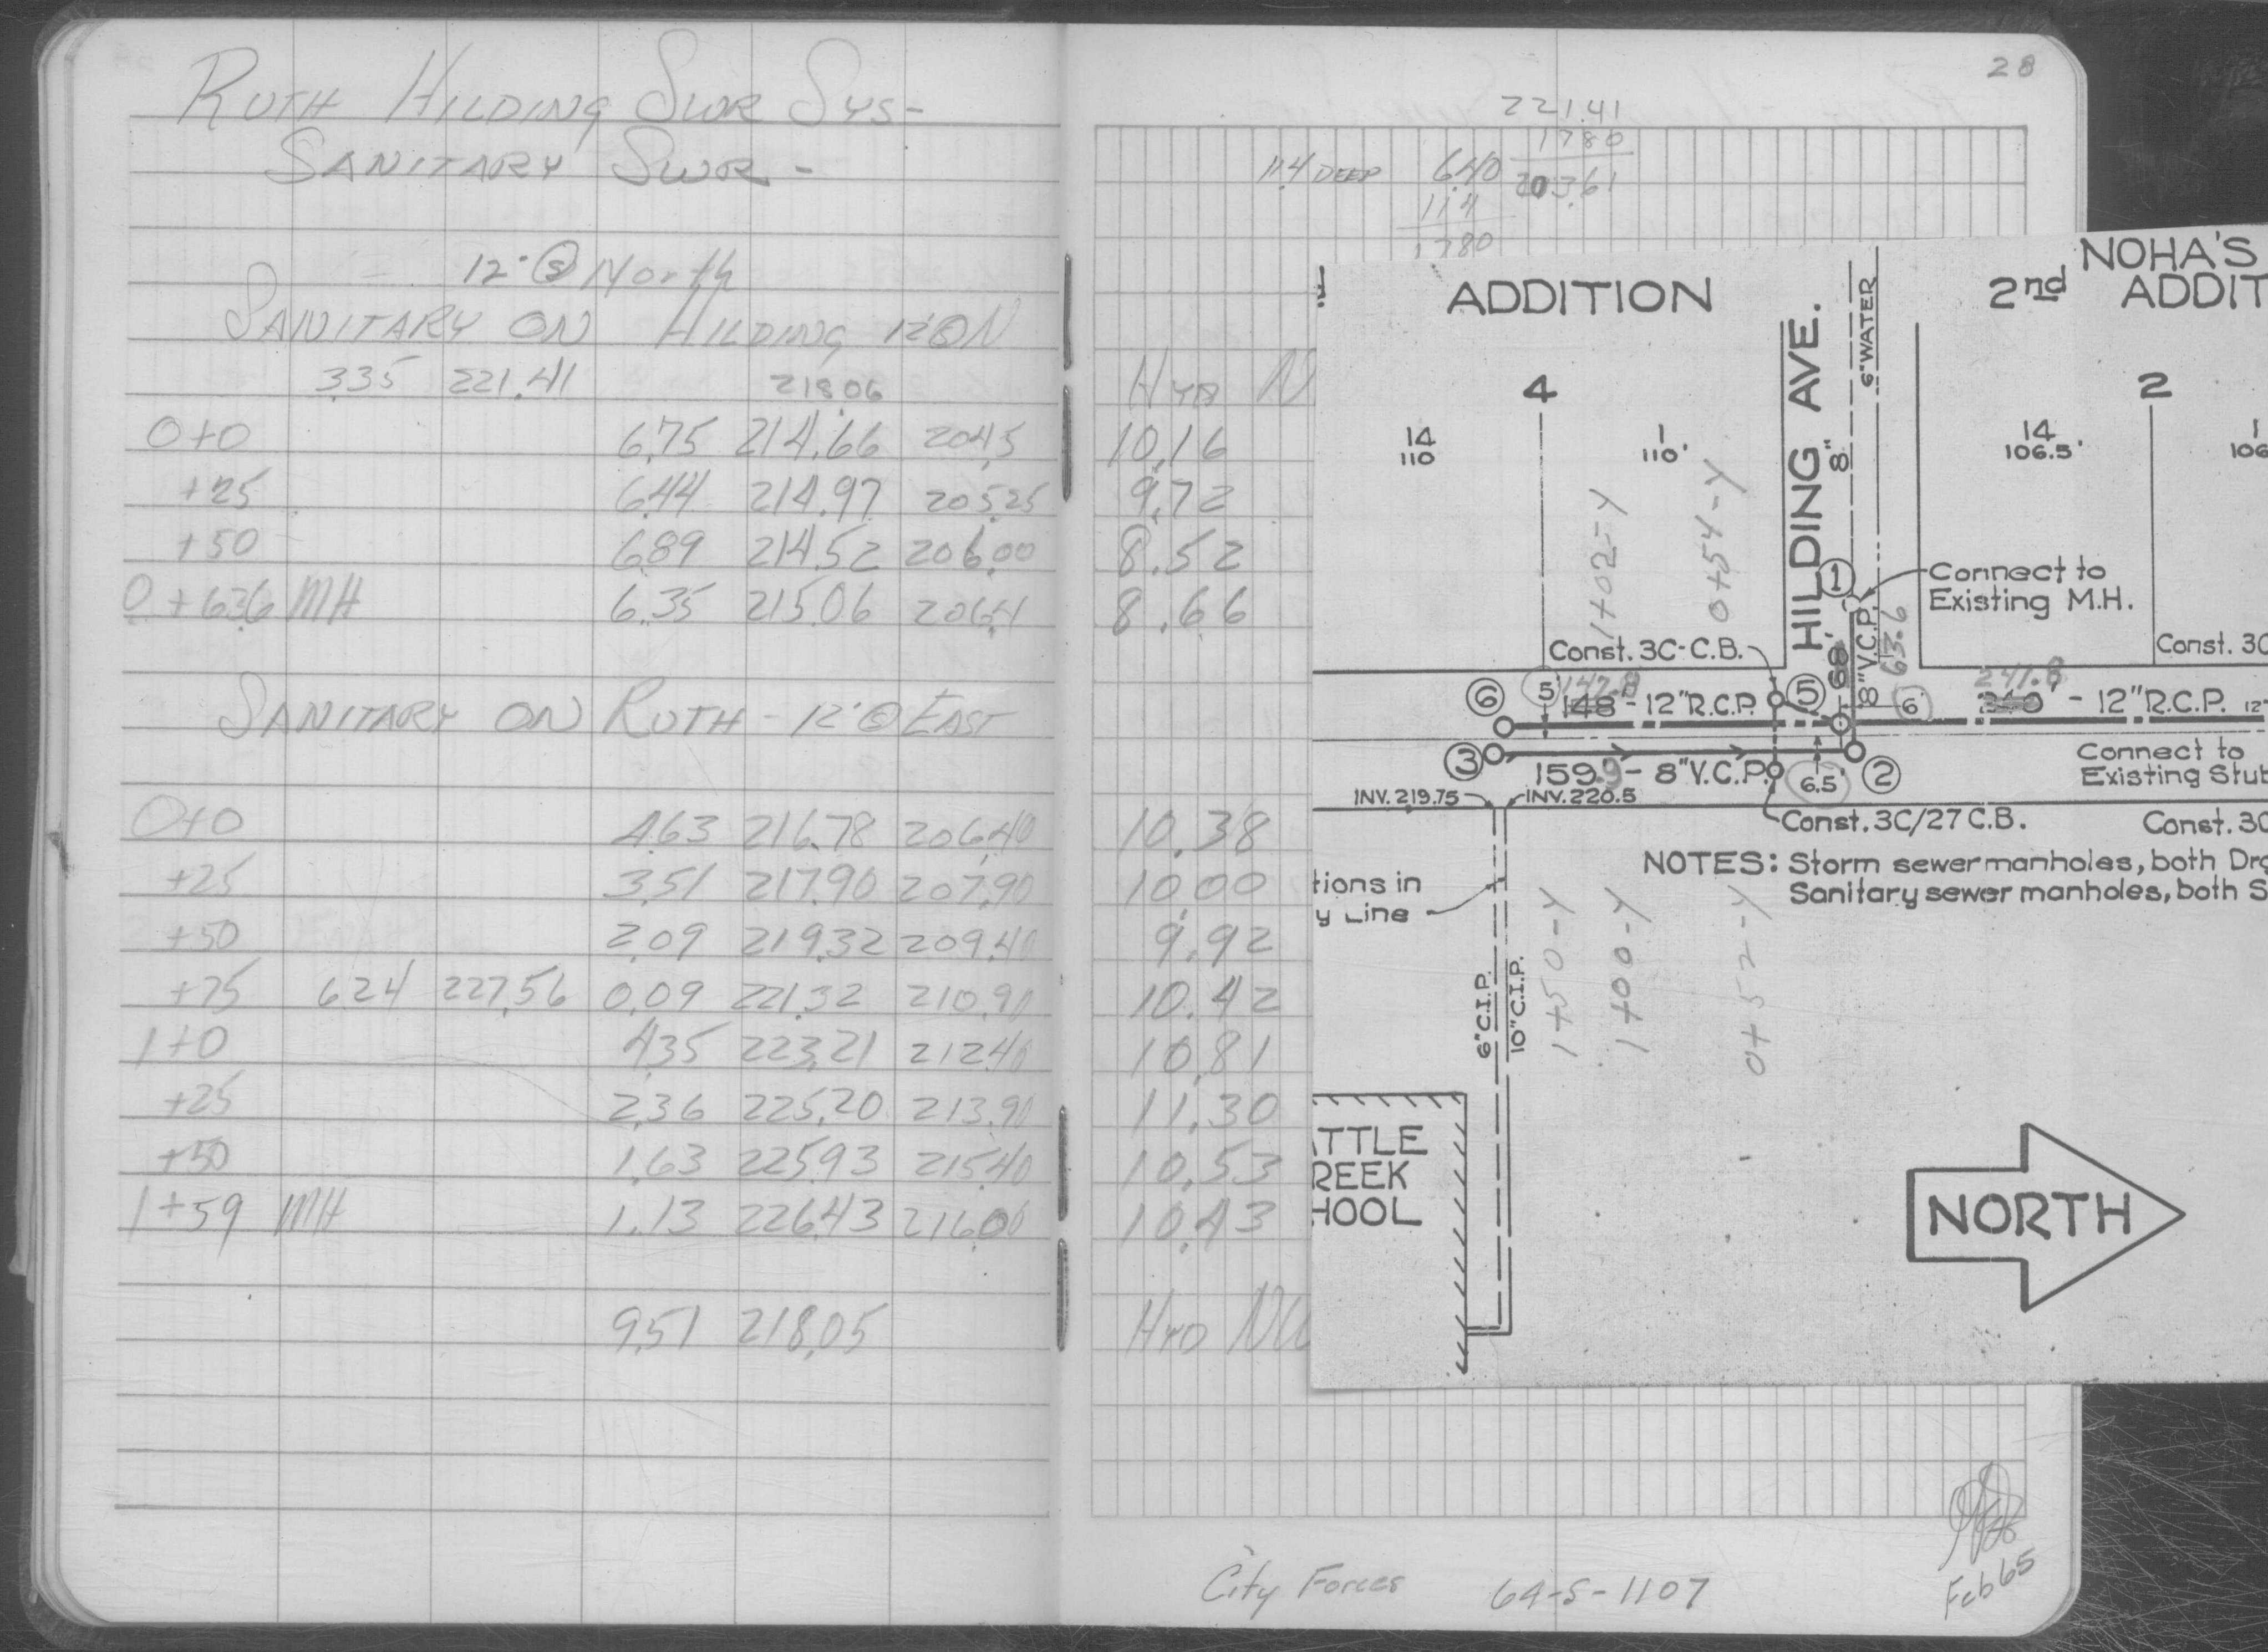 RUTH HILDING SWR SYS-
SANITARY SWR-
12' @ North
SANITARY ON HILDING 12'@N
3.35 221.41 218.06
0+0 6.75 214.66 204.5 10.16
+25 6.44 214.97 205.25 9.72
+50 6.89 214.52 206.00 8.52
0+63.6 MH 6.35 215.06 206.4 8.66
SANITARY ON RUTH - 12' @ EAST
0+0 4.63 216.78 206.40 10.38
+25 3.51 217.90 207.90 10.00
+50 2.09 219.32 209.40 9.92
+75 6.24 227.56 0.09 221.32 210.90 10.42
1+0 4.35 223.21 212.40 10.81
+25 2.36 225.20 213.90 11.30
+50 1.63 225.93 215.40 10.53
1+59 MH 1.13 226.43 216.00 10.43
9.51 218.05
28
221.41
1780
203.61
11.4 DEEP 6.40
11.4
1780
HYD N
HYD NW
ADDITION
HILDING AVE.
6" WATER
8"
2nd NOHA'S
ADDIT
4
2
14
110
1
110'
14
106.5'
1
106
1+02-Y
0+54-Y
1
Connect to
Existing M.H.
Const. 3C-C.B.
68'
8" V.C.P.
63.6
Const. 3C
6
5'
147.8
148' - 12" R.C.P.
5
6'
241.8
' - 12" R.C.P. 12"
3
159.9 - 8" V.C.P.
6.5'
2
Connect to
Existing Stub
INV. 219.75
INV. 220.5
Const. 3C/27 C.B.
Const. 3C
NOTES: Storm sewer manholes, both Drg
Sanitary sewer manholes, both S
tions in
y Line
1+50-Y
1+00-Y
0+52-Y
6" C.I.P.
10" C.I.P.
ATTLE
REEK
HOOL
NORTH
City Forces 64-S-1107
Feb 65